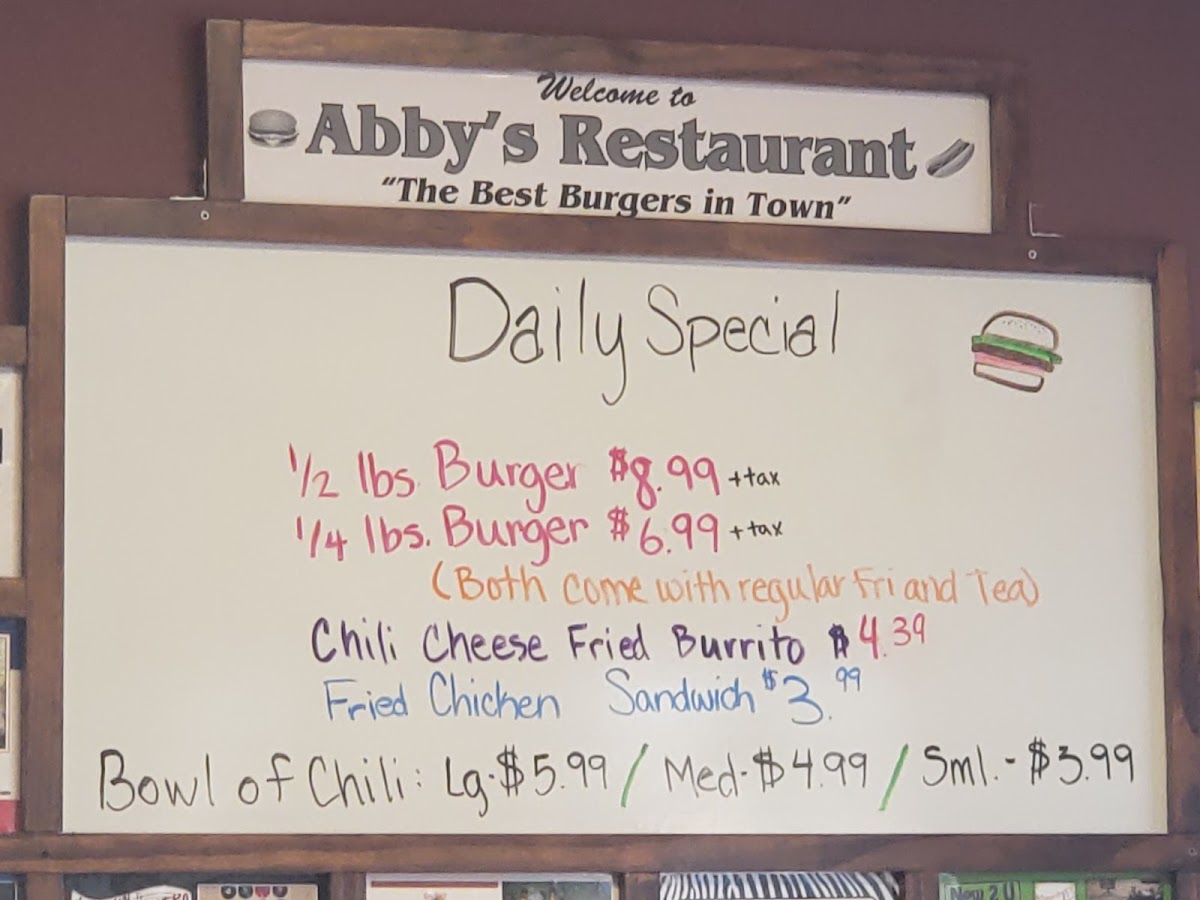 Welcome to
Abby's Restaurant
"The Best Burgers in Town"
Daily Special
1/2 lbs. Burger $8.99 +tax
1/4 lbs. Burger $6.99 +tax
(Both come with regular Fri and Tea)
Chili Cheese Fried Burrito $4.39
Fried Chicken Sandwich $3.99
Bowl of Chili: Lg-$5.99 / Med-$4.99 / Sml.-$3.99
New 2 U